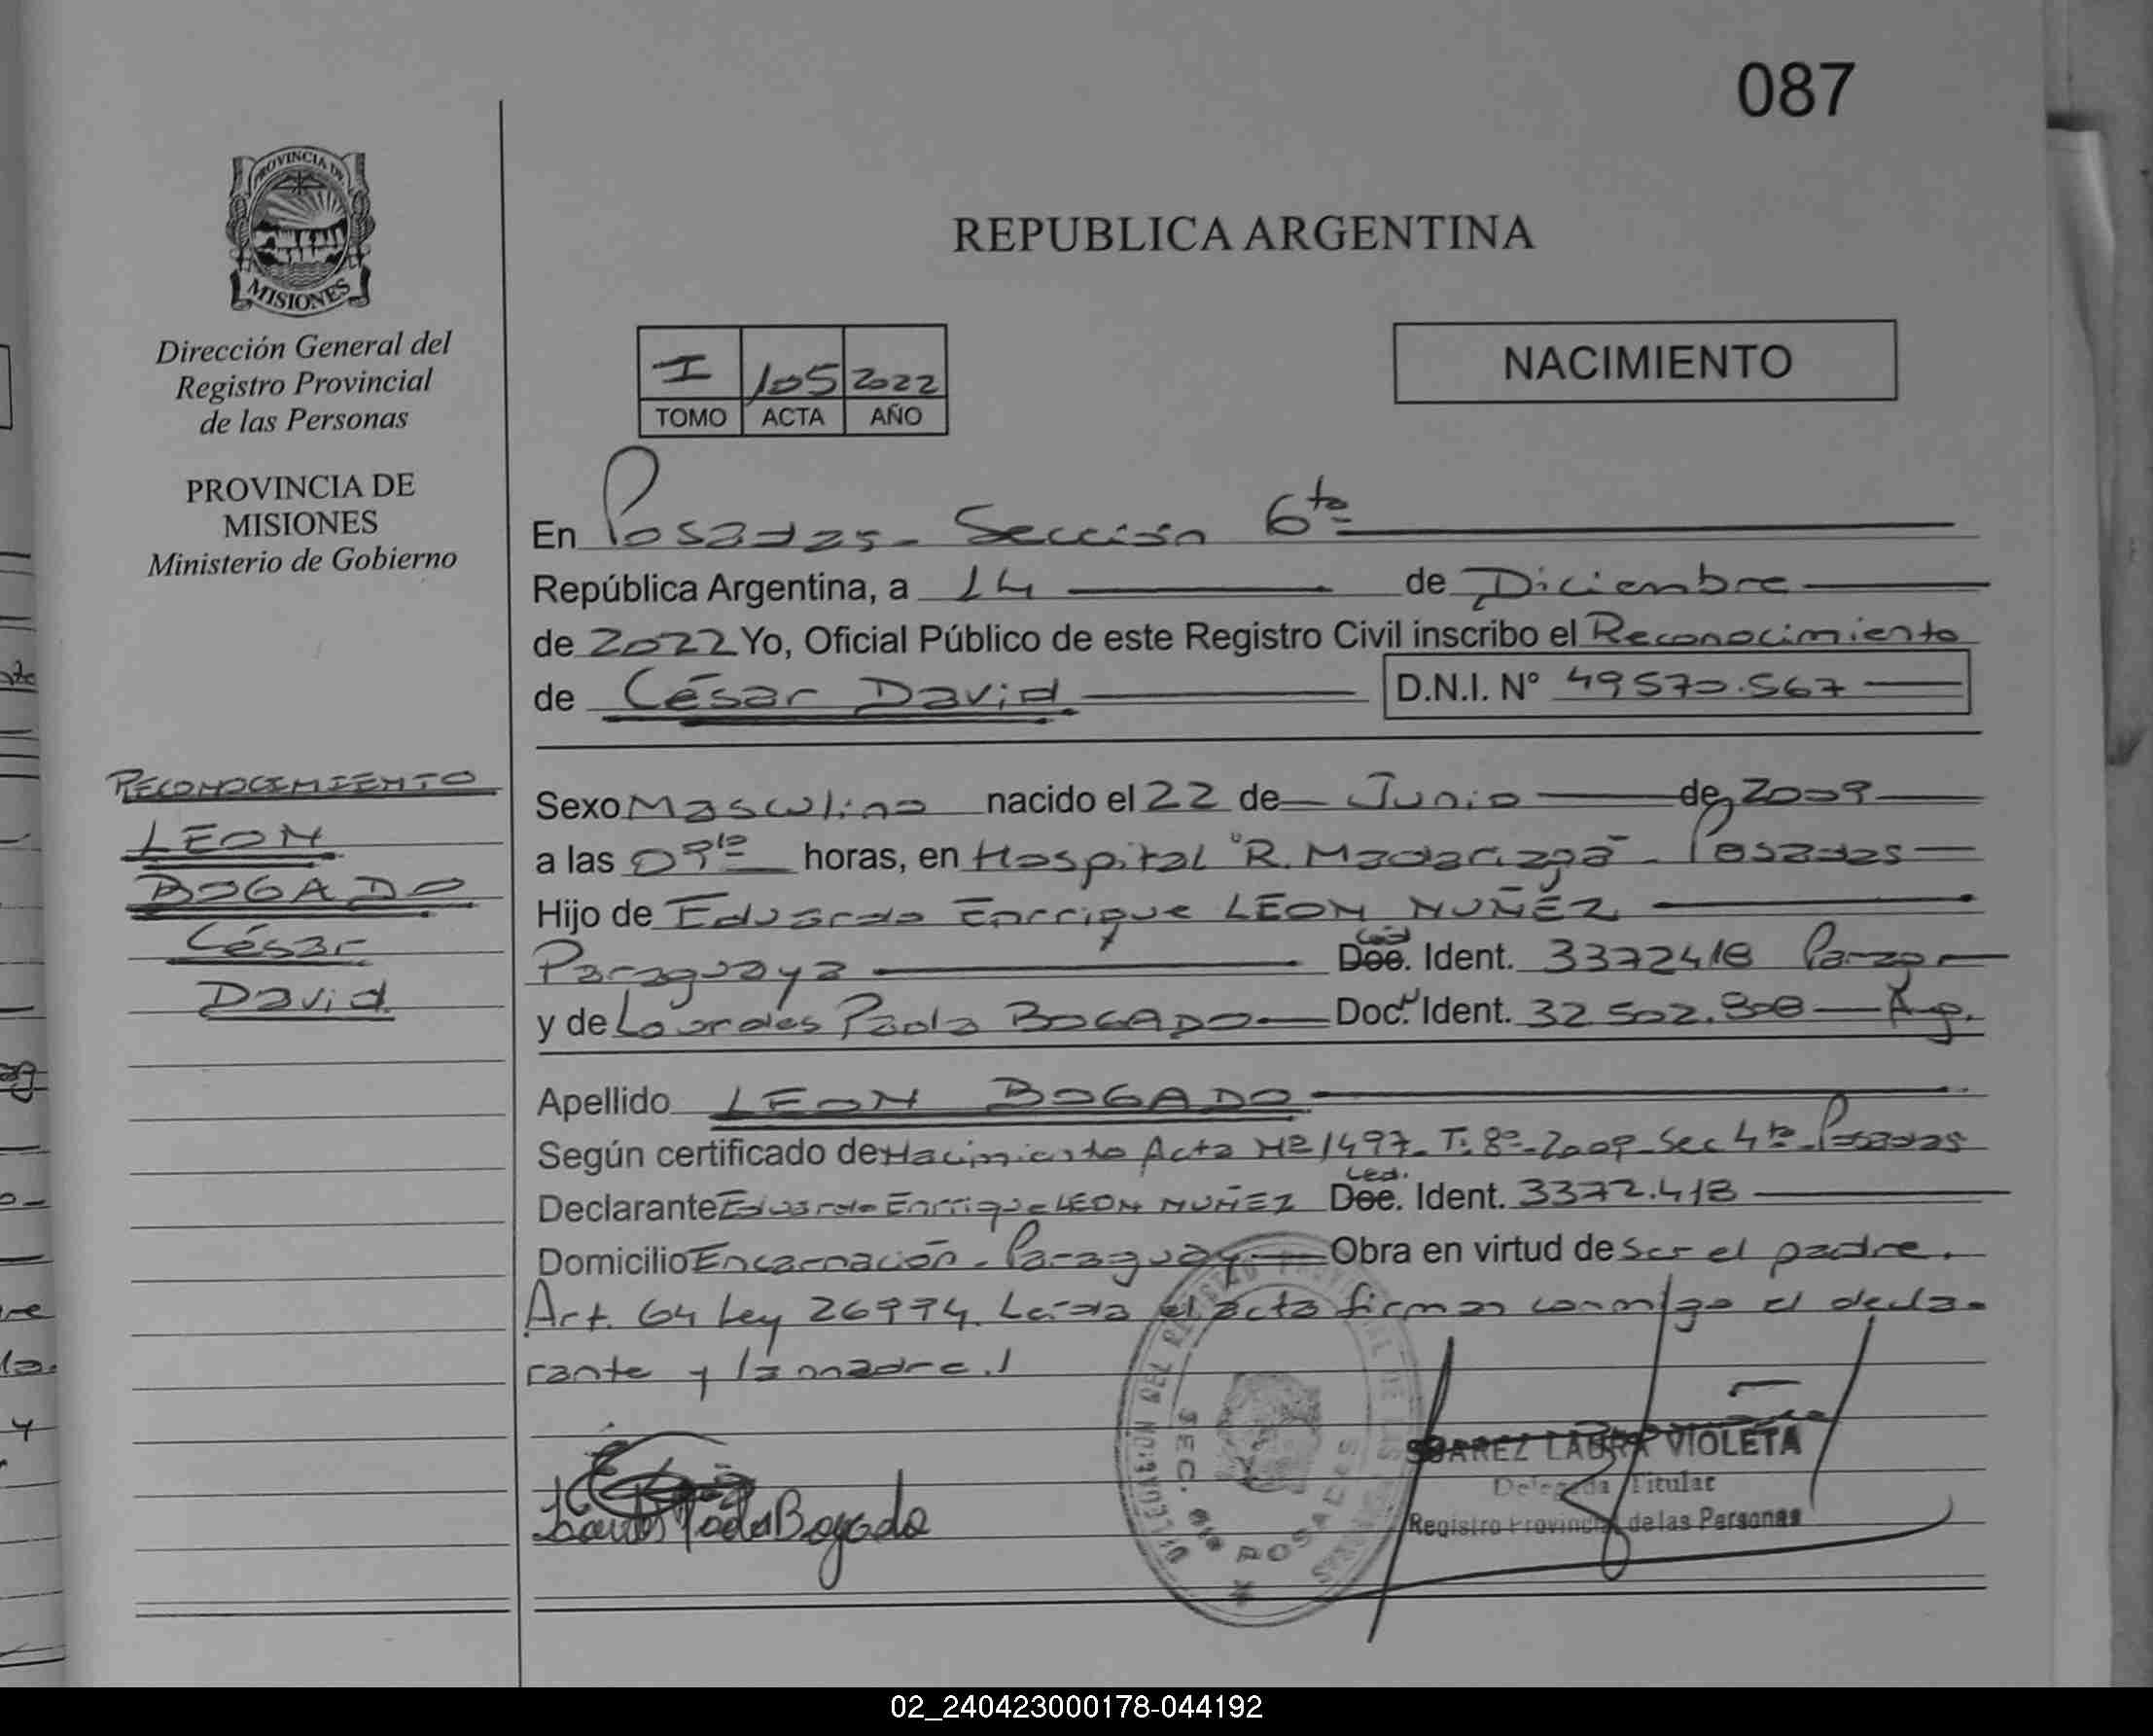 087
PROVINCIA DE
MISIONES
Dirección General del
Registro Provincial
de las Personas
PROVINCIA DE
MISIONES
Ministerio de Gobierno
REPUBLICA ARGENTINA
I 105 2022
TOMO ACTA AÑO
NACIMIENTO
En Posadas - Sección 6ta
República Argentina, a 14 de Diciembre
de 2022 Yo, Oficial Público de este Registro Civil inscribo el Reconocimiento
de César David D.N.I. N° 49570.567
RECONOCIMIENTO
LEON
BOGADO
César
David
Sexo Masculino nacido el 22 de Junio de 2009
a las 09 horas, en Hospital "R. Madariaga" - Posadas
Hijo de Eduardo Enrrique LEON NUÑEZ
Paraguaya Ced Doc. Ident. 3372418 Parag
y de Lourdes Paola BOGADO Doc. Ident. 32 502.908 Arg.
Apellido LEON BOGADO
Según certificado de Nacimiento Acta Nº 1497 - T: 8º - 2009 - Sec 4ta - Posadas
Declarante Eduardo Enrrique LEON NUÑEZ Ced. Doc. Ident. 3372.418
Domicilio Encarnación - Paraguay Obra en virtud de ser el padre.
Art. 64 Ley 26994. Leída el acta firman conmigo el decla-
rante y la madre.
Lourdes Paola Bogado
SEC. 6ta POSADAS
SUAREZ LAURA VIOLETA
Delegada Titular
Registro Provincial de las Personas
02_240423000178-044192